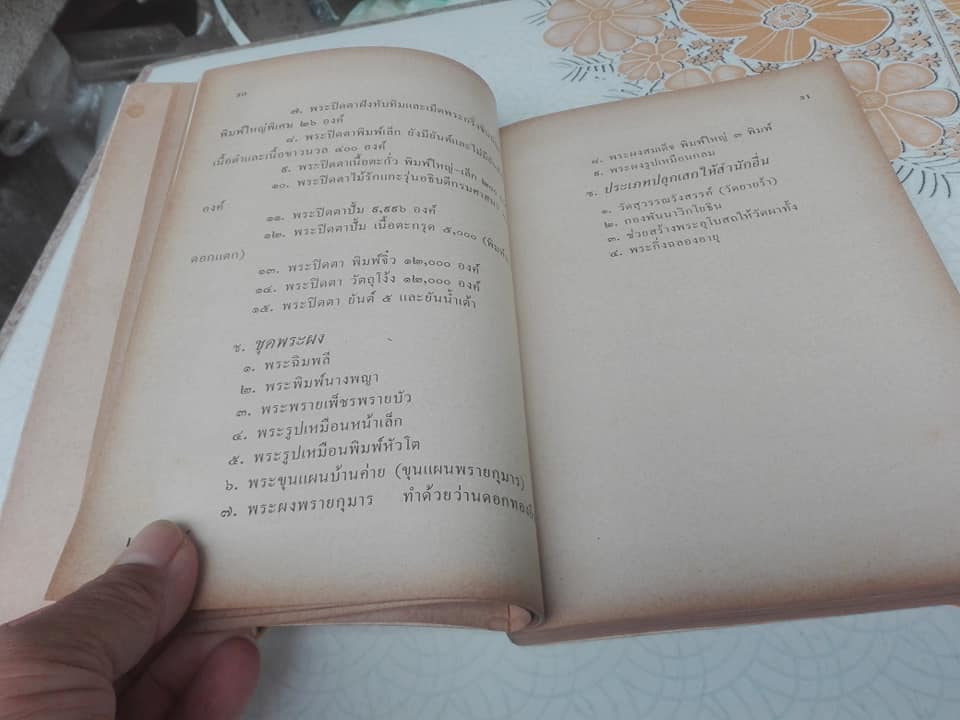 ๒๐
๗. พระปิดตาฝังทับทิมและเม็ดพระกริ่ง
พิมพ์ใหญ่พิเศษ ๒๖ องค์
๘. พระปิดตาพิมพ์เล็ก ยังมียันต์และไม่มี
เนื้อดำและเนื้อขาวนวล ๔๐๐ องค์
๙. พระปิดตาเนื้อตะกั่ว พิมพ์ใหญ่-เล็ก ๒๐๐
๑๐. พระปิดตาไม้รักแกะรุ่นอธิบดีกรมศาสนา
องค์
๑๑. พระปิดตาปั้ม ๙,๙๙๖ องค์
๑๒. พระปิดตาปั้ม เนื้อตะกรุด ๕,๐๐๐
ดอกแตก)
๑๓. พระปิดตา พิมพ์จิ๋ว ๑๒,๐๐๐ องค์
๑๔. พระปิดตา วัตถุโง้ง ๑๒,๐๐๐ องค์
๑๕. พระปิดตา ยันต์ ๕ และยันน้ำเต้า
ช. ชุดพระผง
๑. พระฉิมพลี
๒. พระพิมพ์นางพญา
๓. พระพรายเพ็ชรพรายบัว
๔. พระรูปเหมือนหน้าเล็ก
๕. พระรูปเหมือนพิมพ์หัวโต
๖. พระขุนแผนบ้านค่าย (ขุนแผนพรายกุมาร)
๗. พระผงพรายกุมาร ทำด้วยว่านดอกทอง
๒๑
๘. พระผงสมเด็จ พิมพ์ใหญ่ ๓ พิมพ์
๙. พระผงรูปเหมือนกลม
ซ. ประเภทปลุกเสกให้สำนักอื่น
๑. วัดสุวรรณรังสรรค์ (วัดอายร้า)
๒. กองพันนาวิกโยธิน
๓. ช่วยสร้างพระอุโบสถให้วัดผาทั้ง
๔. พระกิ่งฉลองอายุ